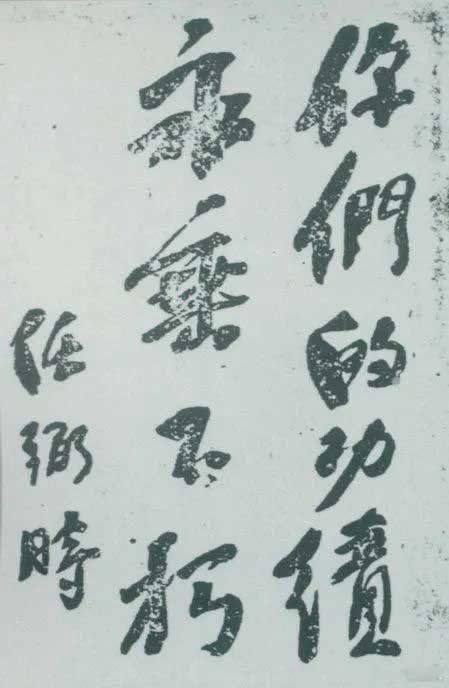 你們的功績
永垂不朽
任弼時